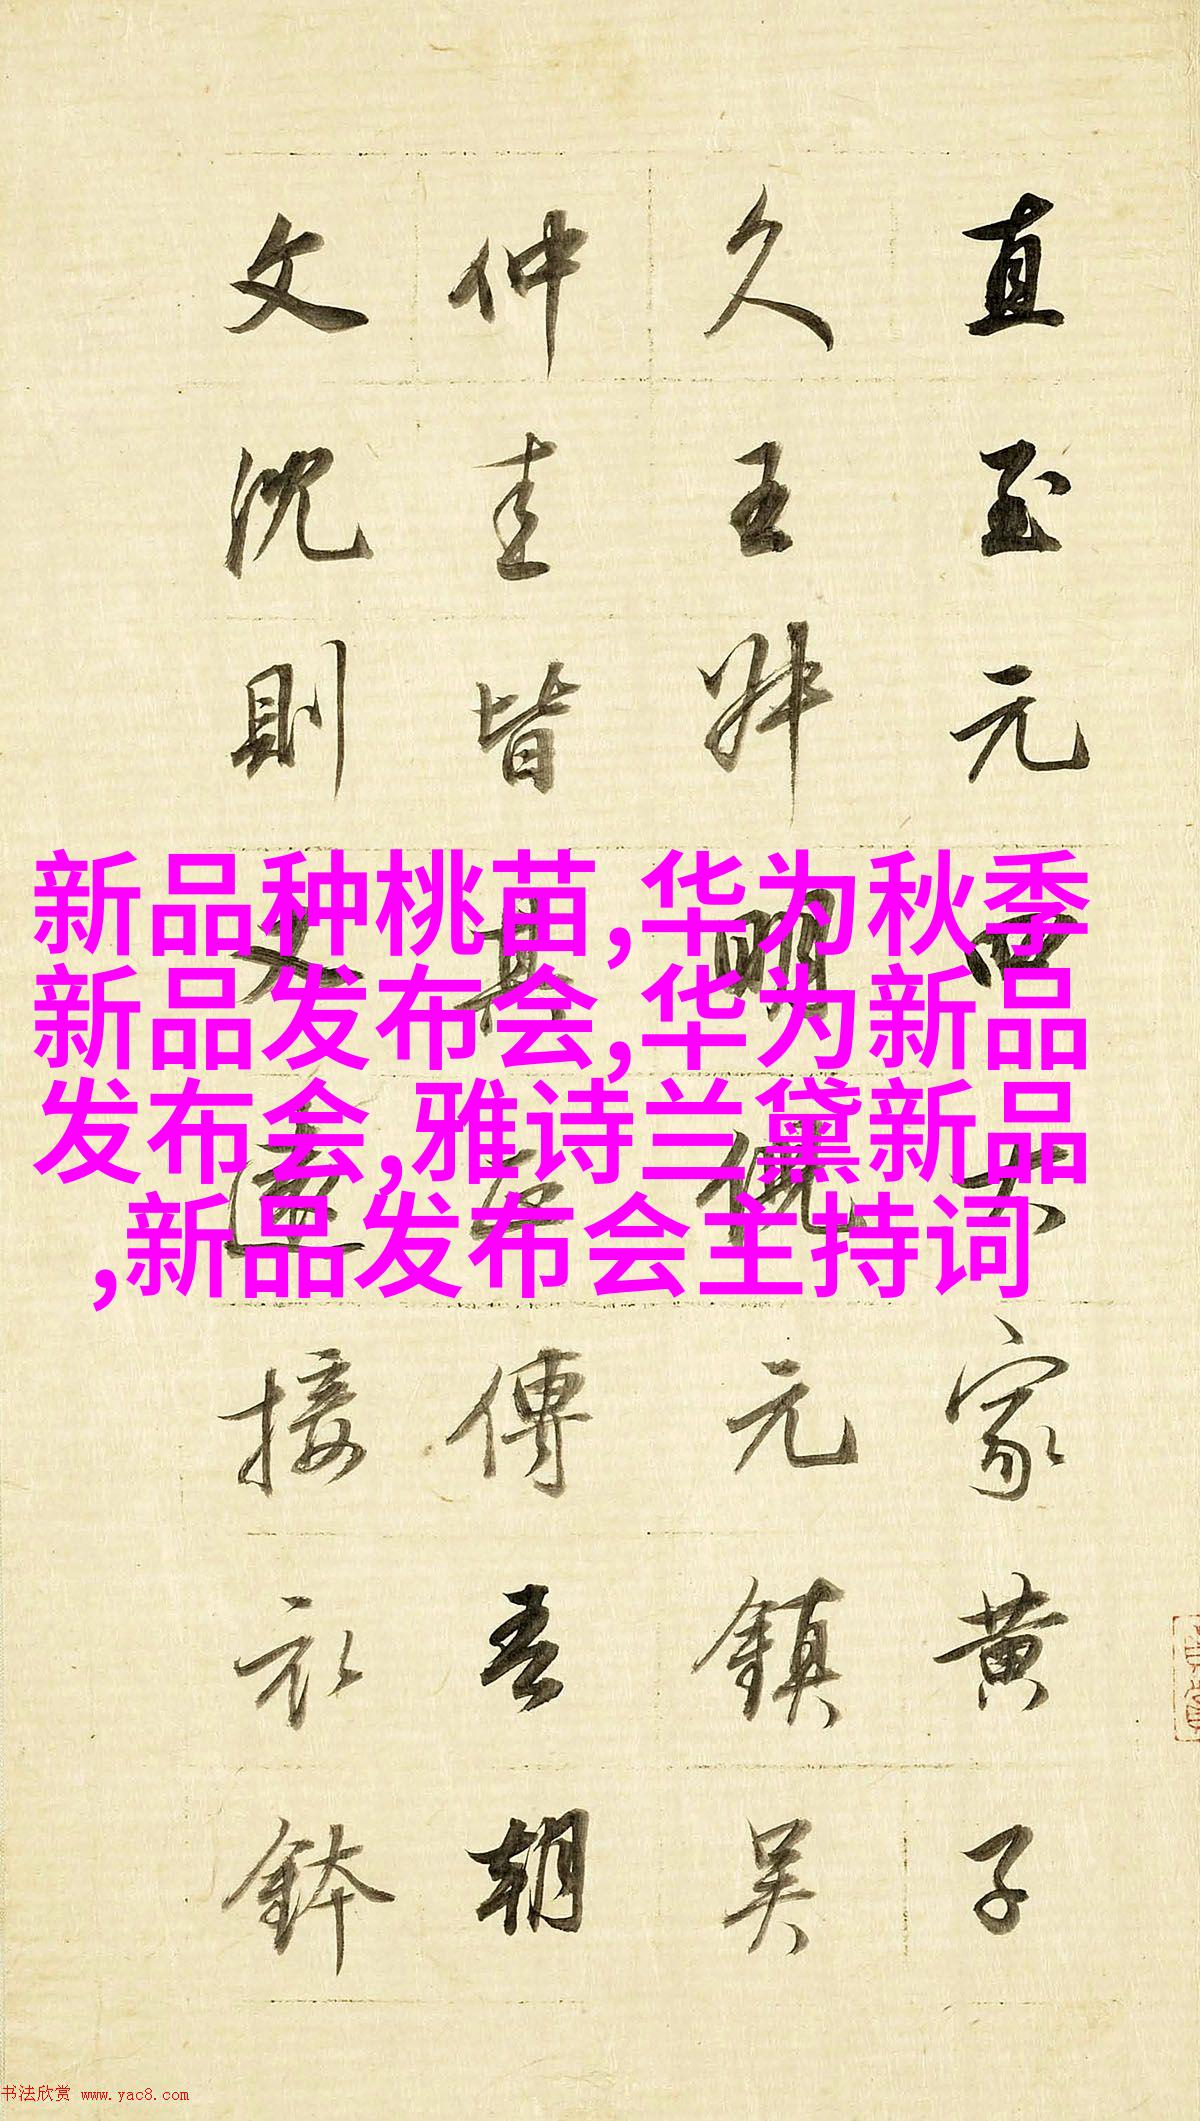 直至元四大家黄子
久王叔明倪元鎮吴
仲圭皆其正傳吾朝
文沈則又遠接衣鉢
新品种桃苗,华为秋季
新品发布会,华为新品
发布会,雅诗兰黛新品
,新品发布会主持词
书法欣赏 www.yac8.com